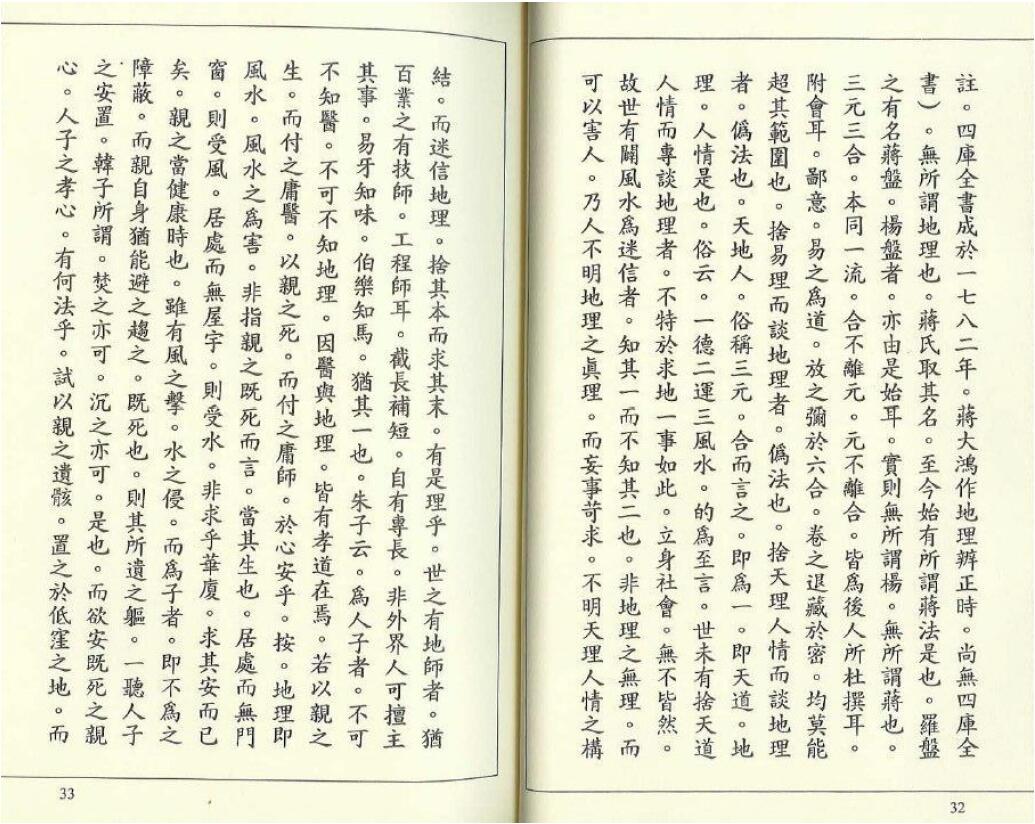 註。四庫全書成於一七八二年。蔣大鴻作地理辨正時。尚無四庫全
書）。無所謂地理也。蔣氏取其名。至今始有所謂蔣法是也。羅盤
之有名蔣盤。楊盤者。亦由是始耳。實則無所謂楊。無所謂蔣也。
三元三合。本同一流。合不離元。元不離合。皆爲後人所杜撰耳。
附會耳。鄙意。易之爲道。放之彌於六合。卷之退藏於密。均莫能
超其範圍也。捨易理而談地理者。僞法也。捨天理人情而談地理
者。僞法也。天地人。俗稱三元。合而言之。即爲一。即天道。地
理。人情是也。俗云。一德二運三風水。的爲至言。世未有捨天道
人情而專談地理者。不特於求地一事如此。立身社會。無不皆然。
故世有闢風水爲迷信者。知其一而不知其二也。非地理之無理。而
可以害人。乃人不明地理之眞理。而妄事苛求。不明天理人情之構
32
結。而迷信地理。捨其本而求其末。有是理乎。世之有地師者。猶
百業之有技師。工程師耳。截長補短。自有專長。非外界人可擅主
其事。易牙知味。伯樂知馬。猶其一也。朱子云。爲人子者。不可
不知醫。不可不知地理。因醫與地理。皆有孝道在焉。若以親之
生。而付之庸醫。以親之死。而付之庸師。於心安乎。按。地理即
風水。風水之爲害。非指親之既死而言。當其生也。居處而無門
窗。則受風。居處而無屋宇。則受水。非求乎華廈。求其安而已
矣。親之當健康時也。雖有風之擊。水之侵。而爲子者。即不爲之
障蔽。而親自身猶能避之趨之。既死也。則其所遺之軀。一聽人子
之安置。韓子所謂。焚之亦可。沉之亦可。是也。而欲安既死之親
心。人子之孝心。有何法乎。試以親之遺骸。置之於低窪之地。而
33